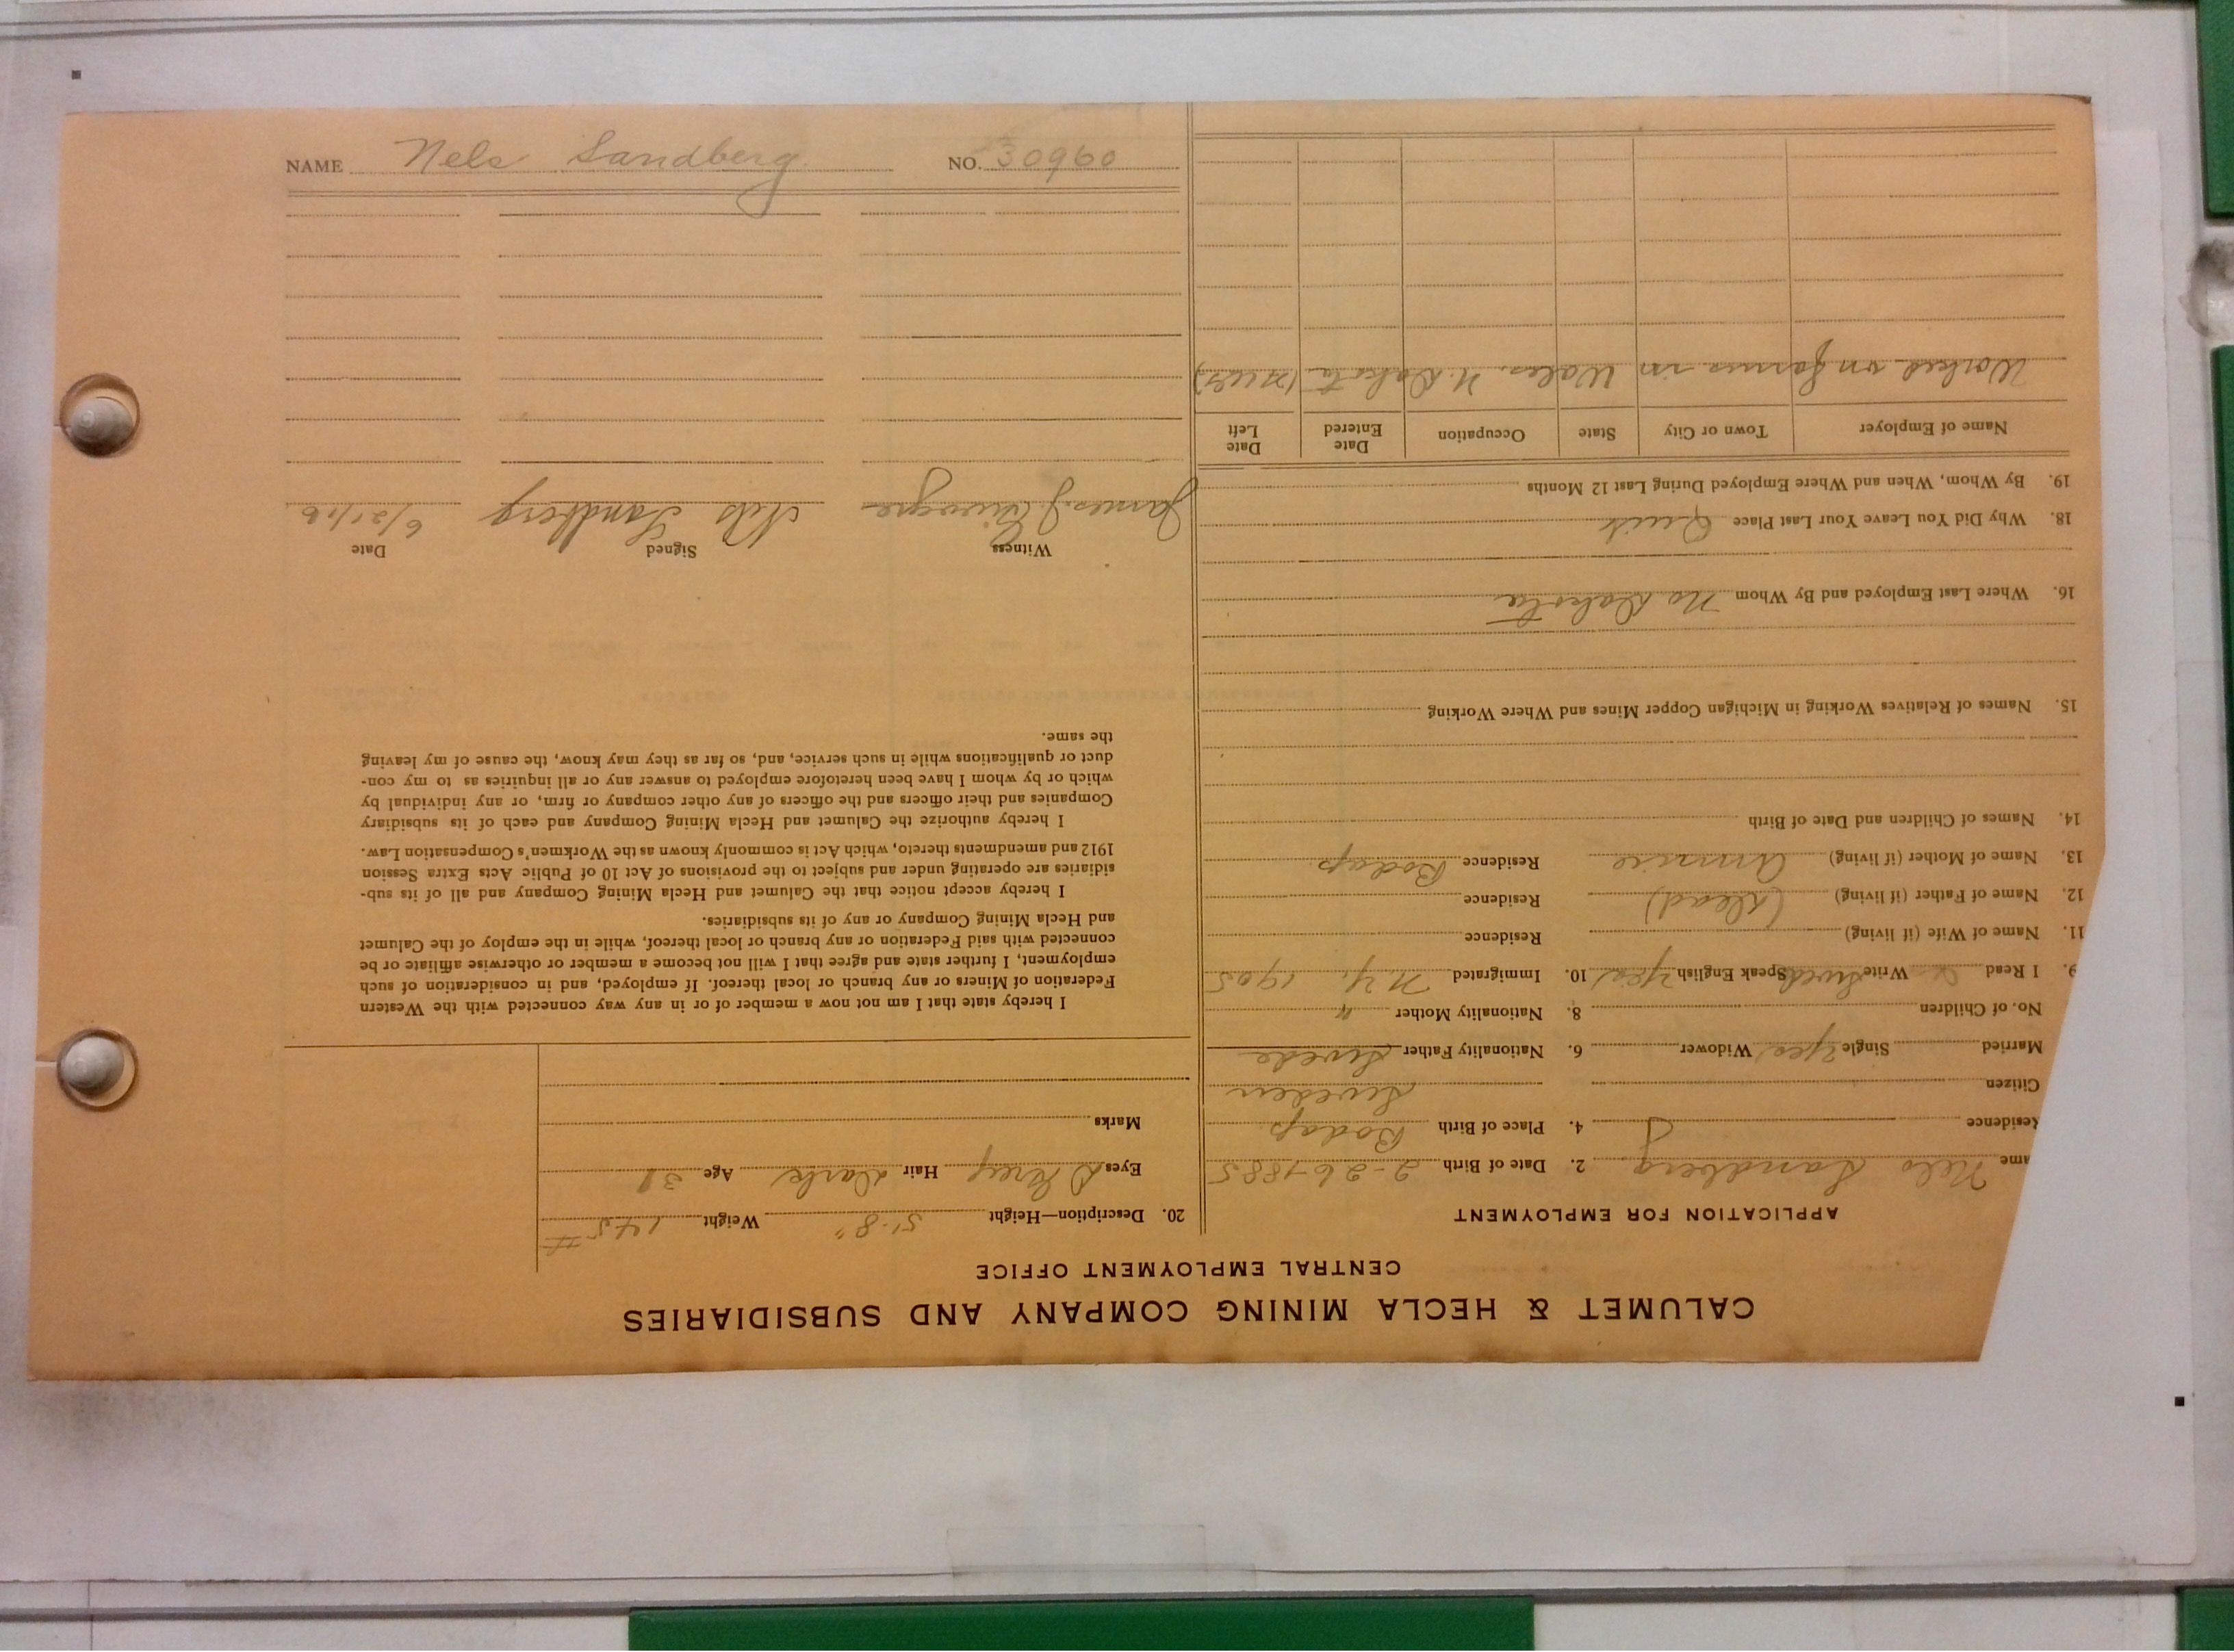 CALUMET & HECLA MINING COMPANY AND SUBSIDIARIES
CENTRAL EMPLOYMENT OFFICE
APPLICATION FOR EMPLOYMENT
ame Nels Sandberg. 2. Date of Birth 2-26-1885
Residence 4. Place of Birth Bodap
Citizen Sweden
Married Single Yes Widower 6. Nationality Father Swede
No. of Children 8. Nationality Mother "
9. I Read Write Swede Speak English Yes 10. Immigrated N.Y. 1905
11. Name of Wife (if living) Residence
12. Name of Father (if living) (dead) Residence
13. Name of Mother (if living) Residence Bodap
14. Names of Children and Date of Birth
15. Names of Relatives Working in Michigan Copper Mines and Where Working
16. Where Last Employed and By Whom No Dakota
18. Why Did You Leave Your Last Place Quit
19. By Whom, When and Where Employed During Last 12 Months
Name of Employer Town or City State Occupation Date Entered Date Left
Worked on farms in Wales, N. Dakota
20. Description—Height 5'-8" Weight 145#
Eyes Grey Hair Dark Age 31
Marks
I hereby state that I am not now a member of or in any way connected with the Western
Federation of Miners or any branch or local thereof. If employed, and in consideration of such
employment, I further state and agree that I will not become a member or otherwise affiliate or be
connected with said Federation or any branch or local thereof, while in the employ of the Calumet
and Hecla Mining Company or any of its subsidiaries.
I hereby accept notice that the Calumet and Hecla Mining Company and all of its sub-
sidiaries are operating under and subject to the provisions of Act 10 of Public Acts Extra Session
1912 and amendments thereto, which Act is commonly known as the Workmen's Compensation Law.
I hereby authorize the Calumet and Hecla Mining Company and each of its subsidiary
Companies and their officers and the officers of any other company or firm, or any individual by
which or by whom I have been heretofore employed to answer any or all inquiries as to my con-
duct or qualifications while in such service, and, so far as they may know, the cause of my leaving
the same.
Witness Signed Date
James J. Nels Sandberg 6/21/16
NAME Nels Sandberg. NO. 30960